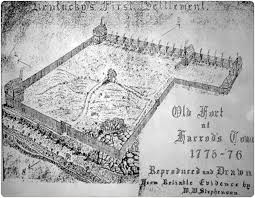 Kentucky's First Settlement.
Old Fort
at
Harrods Town
1775-76
Reproduced and Drawn
from Reliable Evidence by
W.W. Stephenson